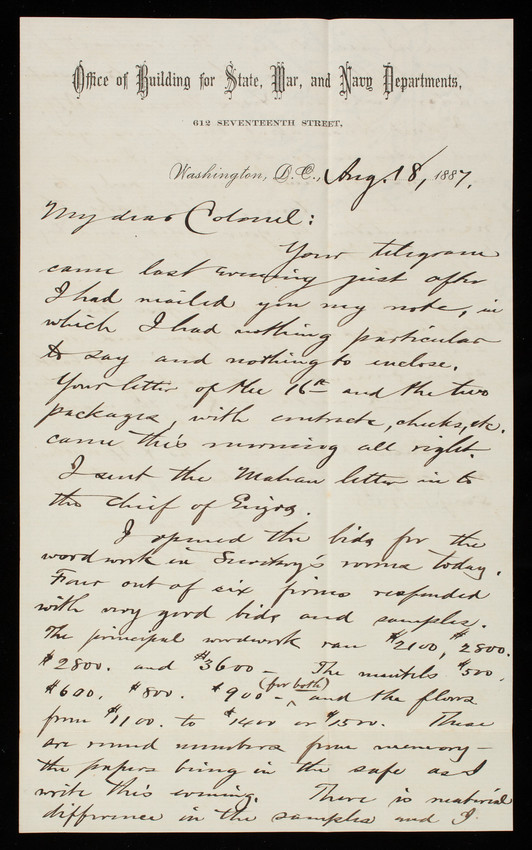 Office of Building for State, War, and Navy Departments,
612 SEVENTEENTH STREET,
Washington, D.C., Aug. 18, 1887.
My dear Colonel:
Your telegram
came last evening just after
I had mailed you my note, in
which I had nothing particular
to say and nothing to enclose.
Your letter of the 16th and the two
packages, with contracts, checks, etc.
came this morning all right.
I sent the Mahan letter in to
the Chief of Engrs.
I opened the bids for the
woodwork in Secretary's rooms today.
Four out of six firms responded
with very good bids and samples.
The principal woodwork ran $2100, $2800.
$2800. and $3600 – The mantels $500,
$600, $800. $900 – (for both) and the floors
from $1100. to $1400 or $1500. These
are round numbers from memory –
the papers being in the safe as I
write this evening. There is material
difference in the samples and I